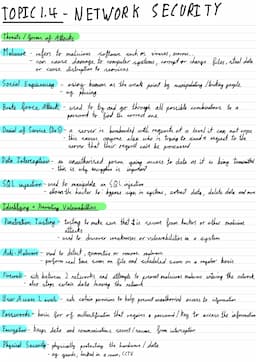 TOPIC 1.4 - NETWORK SECURITY
Threats / Forms of Attacks
Malware - refers to malicious software such as viruses, worms...
- can cause damage to computer systems, corrupt or change files, steal data
or cause disruption to services
Social Engineering - using humans as the weak point by manipulating / tricking people
- eg. phishing
Brute Force Attack - used to try and go through all possible combinations to a
password to find the correct one
Denial of Service (DoS) - a server is bombarded with requests to a level it can not cope
this causes anyone else who is trying to send a request to the
server that their request can't be processed
Data Interception - an unauthorised person gaining access to data as it is being transmitted
- this is why encryption is important
SQL injection - used to manipulate an SQL injection
- allows the hacker to bypass sign in systems, extract data, delete data and more
Identifying + Preventing Vulnerabilities
Penetration Testing - testing to make sure that is secure from hackers or other malicious
attacks
- used to discover weaknesses or vulnerabilities in a system
Anti-Malware - used to detect, quarantine or remove malware
- perform real time scans on files and scheduled scans on a regular basis
Firewall - sits between 2 networks and attempts to prevent malicious malware entering the network
- also stops certain data leaving the network
User Access Levels - sets certain permissions to help prevent unauthorised access to information
Passwords - basic for of authentification that requires a password / key to access the information
Encryption - keeps data and communications secret / secure from interception
Physical Security - physically protecting the hardware / data
- eg. guards, locked in a room, CCTV